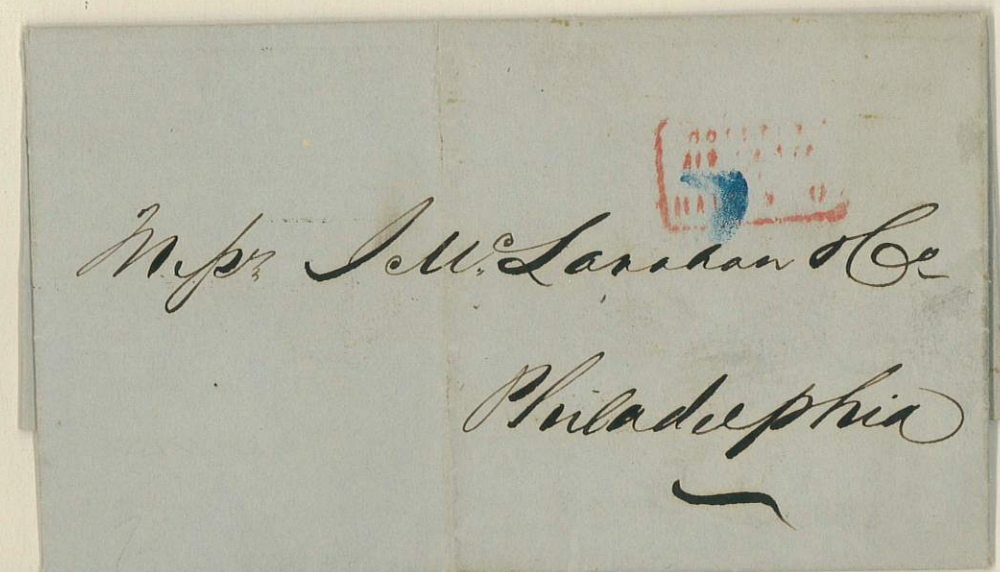 Messrs J McLanahan & Co
Philadelphia